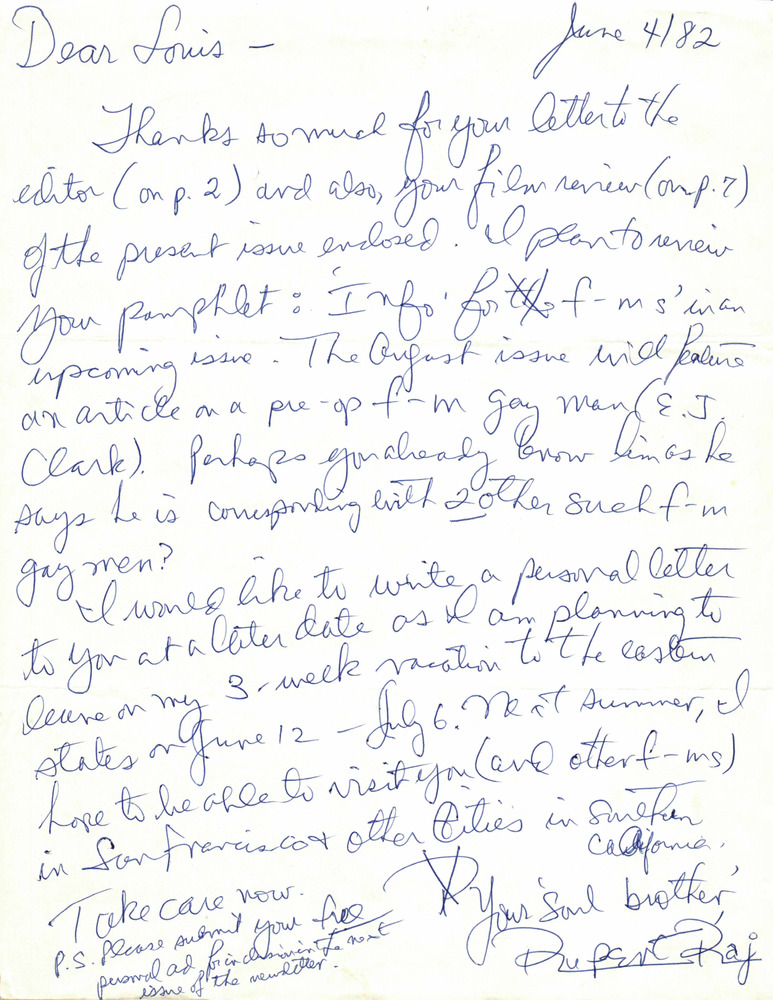 June 4/82
Dear Louis –
Thanks so much for your letter to the
editor (on p. 2) and also, your film review (on p. 7)
of the present issue enclosed. I plan to review
your pamphlet: Info. for f-ms' in an
upcoming issue. The August issue will feature
an article on a pre-op f-m gay man (E.J.
Clark). Perhaps you already know him as he
says he is corresponding with 2 other such f-m
gay men?
I would like to write a personal letter
to you at a later date as I am planning to
leave on my 3-week vacation to the eastern
states on June 12 – July 6. Next summer, I
hope to be able to visit you (and other f-ms)
in San Francisco & other cities in southern
California.
Take care now.
Your 'soul brother',
Rupert Raj
P.S. Please submit your free
personal ad for inclusion in the next
issue of the newsletter.